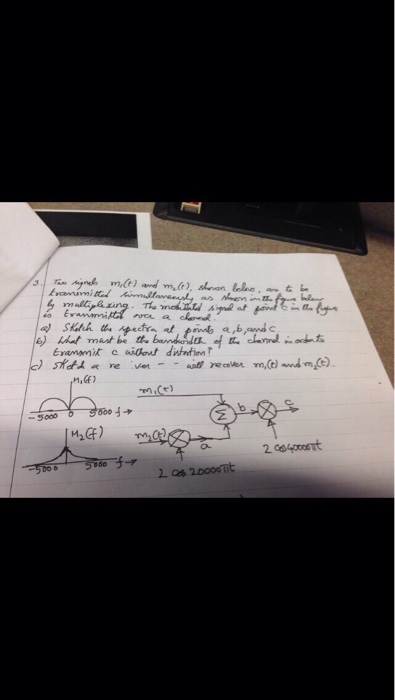 3. Two signals m₁(t) and m₂(t), shown below, are to be
transmitted simultaneously as shown in the figure below
by multiplexing. The modulated signal at point C in the figure
is transmitted over a channel.
a) Sketch the spectra at points a, b, and c
b) What must be the bandwidth of the channel in order to
transmit c without distortion?
c) Sketch a re ver - - will recover m₁(t) and m₂(t).
M₁(f)
m₁(t)
-5000 0 5000 f→
Σ b c
M₂(f)
m₂(t)
a
2 cos 40000πt
-5000 5000 f→
2 cos 20000πt